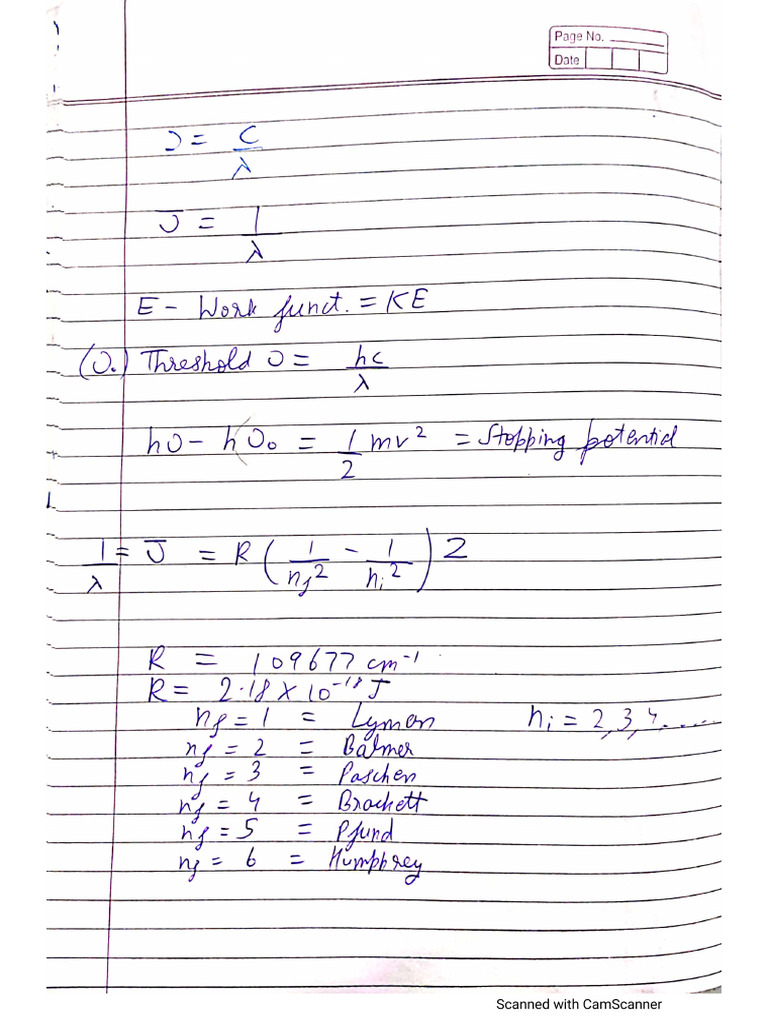 Page No.
Date
υ = C/λ
ῡ = 1/λ
E - Work funct. = KE
(υ₀) Threshold υ = hc/λ
hυ - hυ₀ = 1/2 mv² = Stopping potential
1/λ = ῡ = R(1/nf² - 1/ni²) Z
R = 109677 cm⁻¹
R = 2.18 X 10⁻¹⁸ J
nf = 1 = Lyman ni = 2,3,4.....
nf = 2 = Balmer
nf = 3 = Paschen
nf = 4 = Brackett
nf = 5 = Pfund
nf = 6 = Humphrey
Scanned with CamScanner